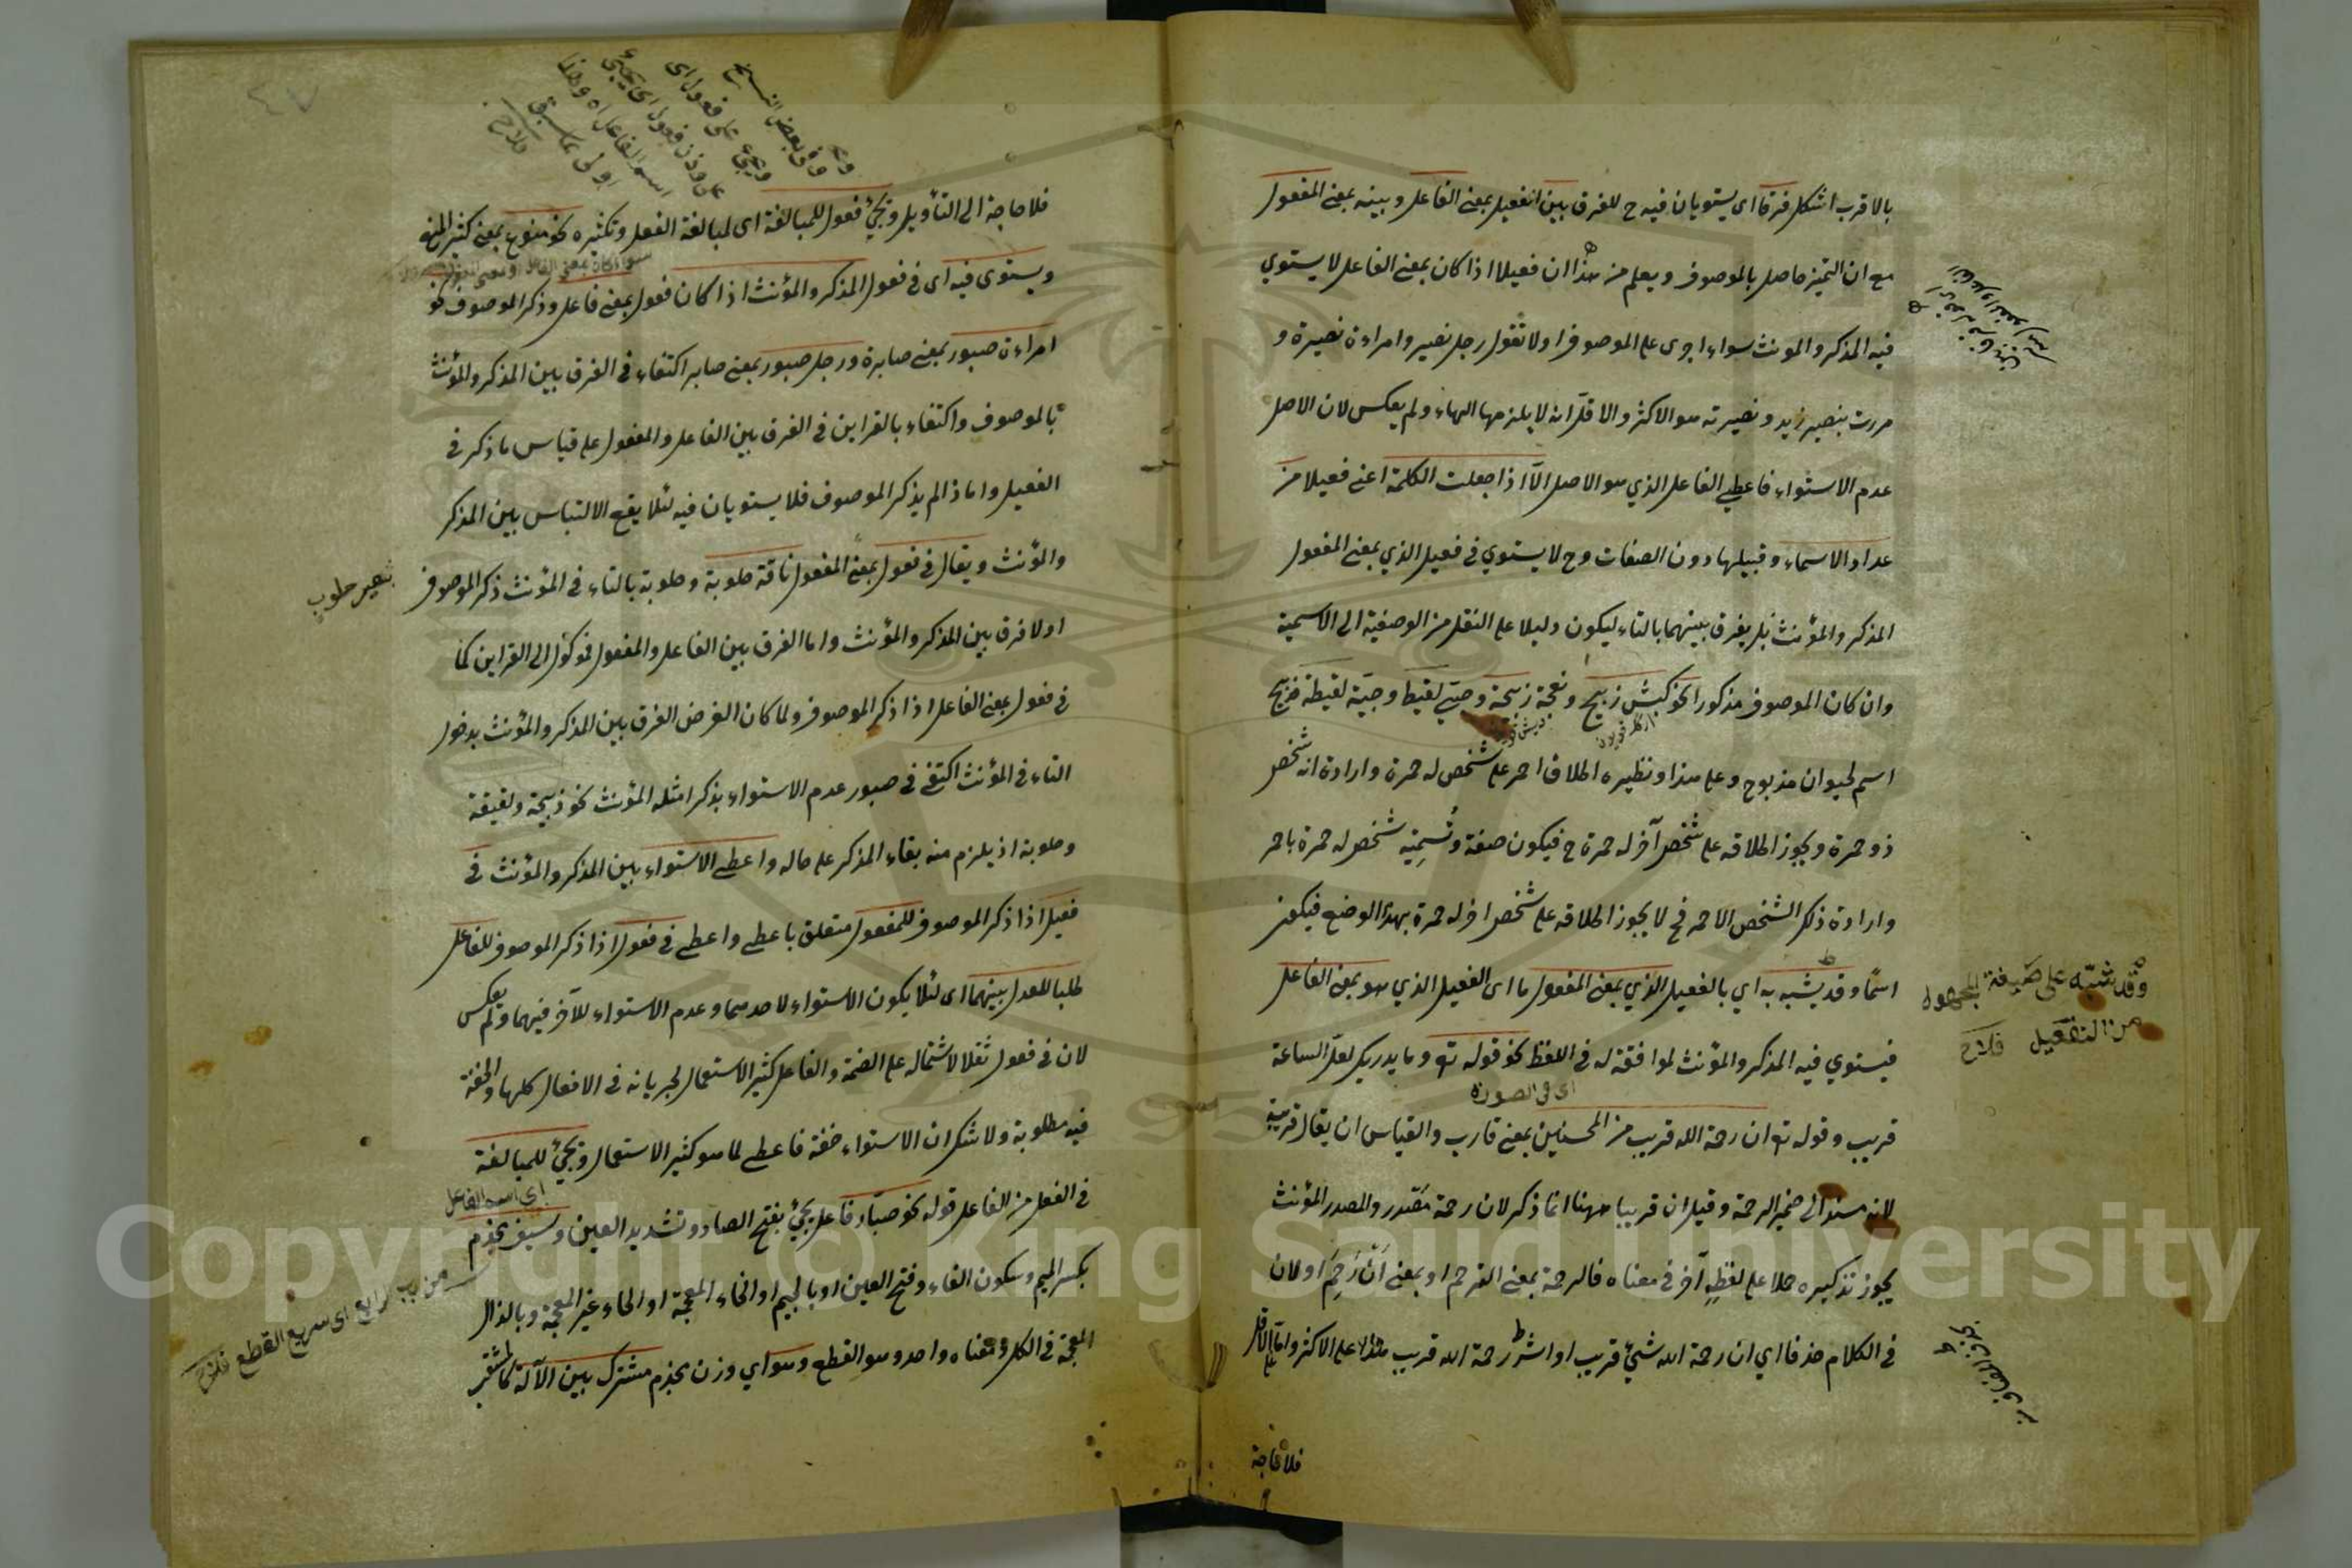 بالاقرب اشكل فرقا اى يستويان فيه ح للفرق بين الفعيل بمعنى الفاعل وبينه بمعنى المفعول
مع ان التميز حاصل بالموصوف ويعلم من هذا ان فعيلا اذا كان بمعنى الفاعل لا يستوي
فيه المذكر والمونث سواء اجرى على الموصوف اولا تقول رجل نصير وامراءة نصيرة و
مررت بنصير زيد ونصيرته هو الاكثر والاقل انه لا يلزمها الهاء ولم يعكس لان الاصل
عدم الاستواء فاعطى الفاعل الذي هو الاصل الا اذا جعلت الكلمة اعنى فعيلا من
عداد الاسماء وقبيلها دون الصفات وح لا يستوي في فعيل الذي بمعنى المفعول
المذكر والمؤنث بل يفرق بينهما بالتاء ليكون دليلا على النقل من الوصفية الى الاسمية
وان كان الموصوف مذكورا نحو كبش ذبيح ونعجة ذبيحة وصبي لقيط وصبية لقيطة فذبيح
اسم لحيوان مذبوح وعلى هذا ونظيره اطلاق احمر على شخص له حمرة وارادة انه شخص
ذو حمرة ويجوز اطلاقه على شخص آخر له حمرة ح فيكون صفة وتسمية شخص له حمرة باحمر
وارادة ذلك الشخص الاحمر فح لا يجوز اطلاقه على شخص اخر له حمرة بهذا الوضع فيكون
اسمًا وقد يشبه به اي بالفعيل الذي بمعنى المفعول ما اى الفعيل الذي هو بمعنى الفاعل
وقد شبه على صيغة المجهول
من التفعيل فلاح
فيستوي فيه المذكر والمؤنث لموافقته له في اللفظ نحو قوله تع وما يدريك لعل الساعة
اى فى الصورة
قريب وقوله تع ان رحمة الله قريب من المحسنين بمعنى قارب والقياس ان يقال قريبة
لانه مسند الى ضمير الرحمة وقيل ان قريبا ههنا انما ذكر لان رحمة مصدر والمصدر المؤنث
يجوز تذكيره حملا على لفظ آخر في معناه فالرحمة بمعنى الترحم او بمعنى ان رحم او لان
في الكلام حذفا اي ان رحمة الله شيئ قريب او اثر رحمة الله قريب هذا على الاكثر واما على الاقل
فلا حاجة
فلا حاجة الى التأويل ويجئ فعول للمبالغة اى لمبالغة الفعل وتكثيره نحو منوع بمعنى كثير المنع
ويستوى فيه اى في فعول المذكر والمؤنث اذا كان فعول بمعنى فاعل وذكر الموصوف نحو
امراءة صبور بمعنى صابرة ورجل صبور بمعنى صابر اكتفاء في الفرق بين المذكر والمؤنث
بالموصوف واكتفاء بالقراين في الفرق بين الفاعل والمفعول على قياس ما ذكر في
الفعيل واما اذا لم يذكر الموصوف فلا يستويان فيه لئلا يقع الالتباس بين المذكر
والمؤنث ويقال في فعول بمعنى المفعول ناقة حلوبة وحلوبة بالتاء في المؤنث ذكر الموصوف
بعير حلوب
اولا فرق بين المذكر والمؤنث واما الفرق بين الفاعل والمفعول فموكول الى القراين كما
في فعول بمعنى الفاعل اذا ذكر الموصوف ولما كان الغرض الفرق بين المذكر والمؤنث بدخول
التاء في المؤنث اكتفى في صبور عدم الاستواء بذكر امثلة المؤنث نحو ذبيحة ولقيطة
وحلوبة اذ يلزم منه بقاء المذكر على حاله واعطى الاستواء بين المذكر والمؤنث في
فعيل اذا ذكر الموصوف للمفعول متعلق باعطى واعطى في فعول اذا ذكر الموصوف للفاعل
طلبا للعدل بينهما اى لئلا يكون الاستواء لاحدهما وعدم الاستواء للآخر فيهما ولم يعكس
لان في فعول ثقلا لاشتماله على الضمة والفاعل كثير الاستعمال لجريانه في الافعال كلها والخفة
فيه مطلوبة ولا شك ان الاستواء خفة فاعطى لما هو كثير الاستعمال ويجئ للمبالغة
اى اسم الفاعل
في الفعل من الفاعل قوله نحو صبار فاعل يجئ بفتح الصاد وتشديد العين وسيف مجذم
من ب رابع اى سريع القطع فلاح
بكسر الميم وسكون الفاء وفتح العين اوبالجيم او الخاء المعجمة او الحاء غير المعجمة وبالذال
المعجمة في الكل ومعناه واحد وهو القطع وهو اي وزن مجذم مشترك بين الآلة